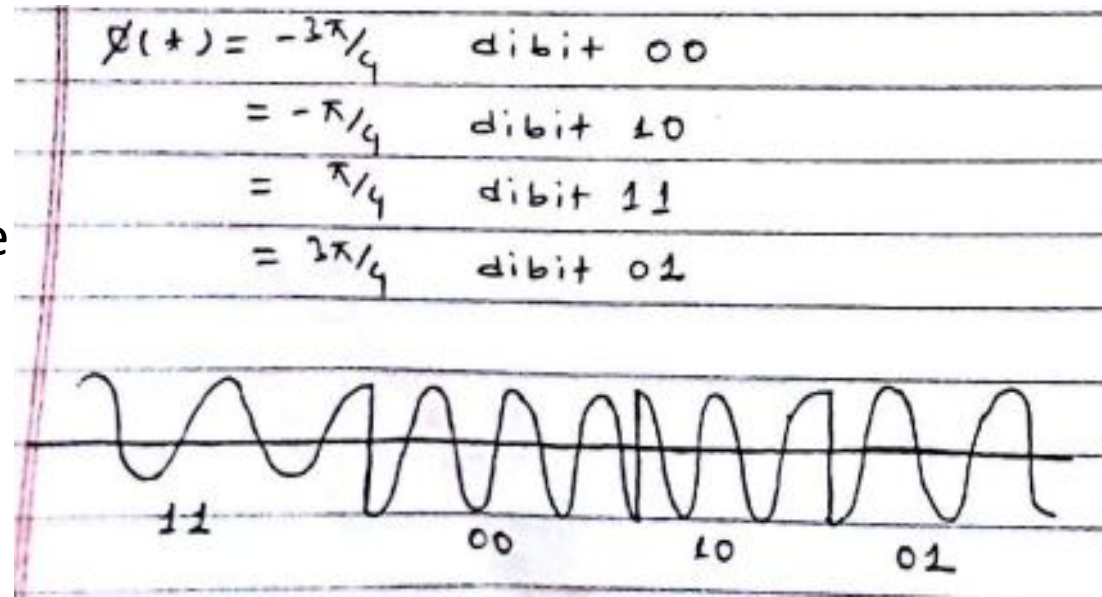 φ(t) = -3π/4 dibit 00
= -π/4 dibit 10
= π/4 dibit 11
= 3π/4 dibit 01
e
11 00 10 01